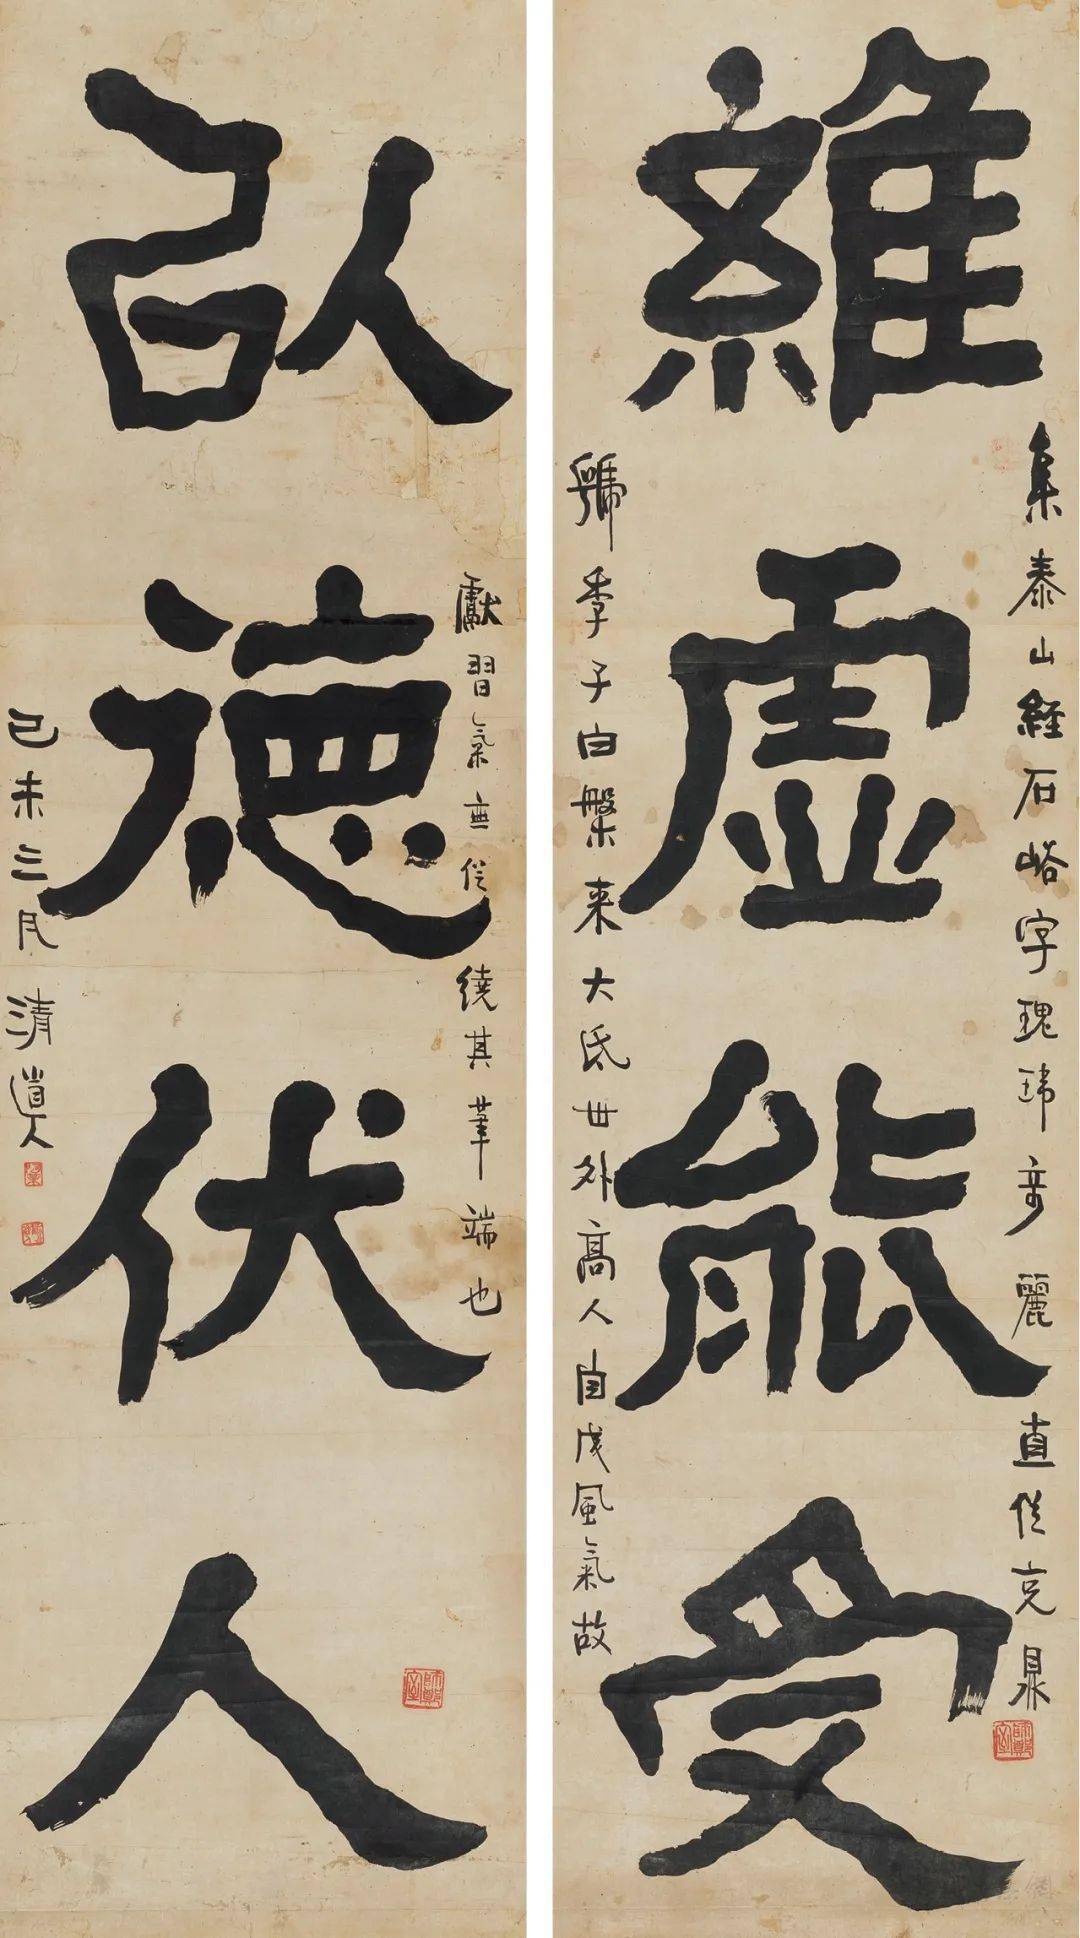 集泰山經石峪字瑰瑋奇麗直從克鼎
維虛能受
虢季子白槃來大氐世外高人自成風氣故
獻習氣無從繞其筆端也
以德伏人
己未三月 清道人